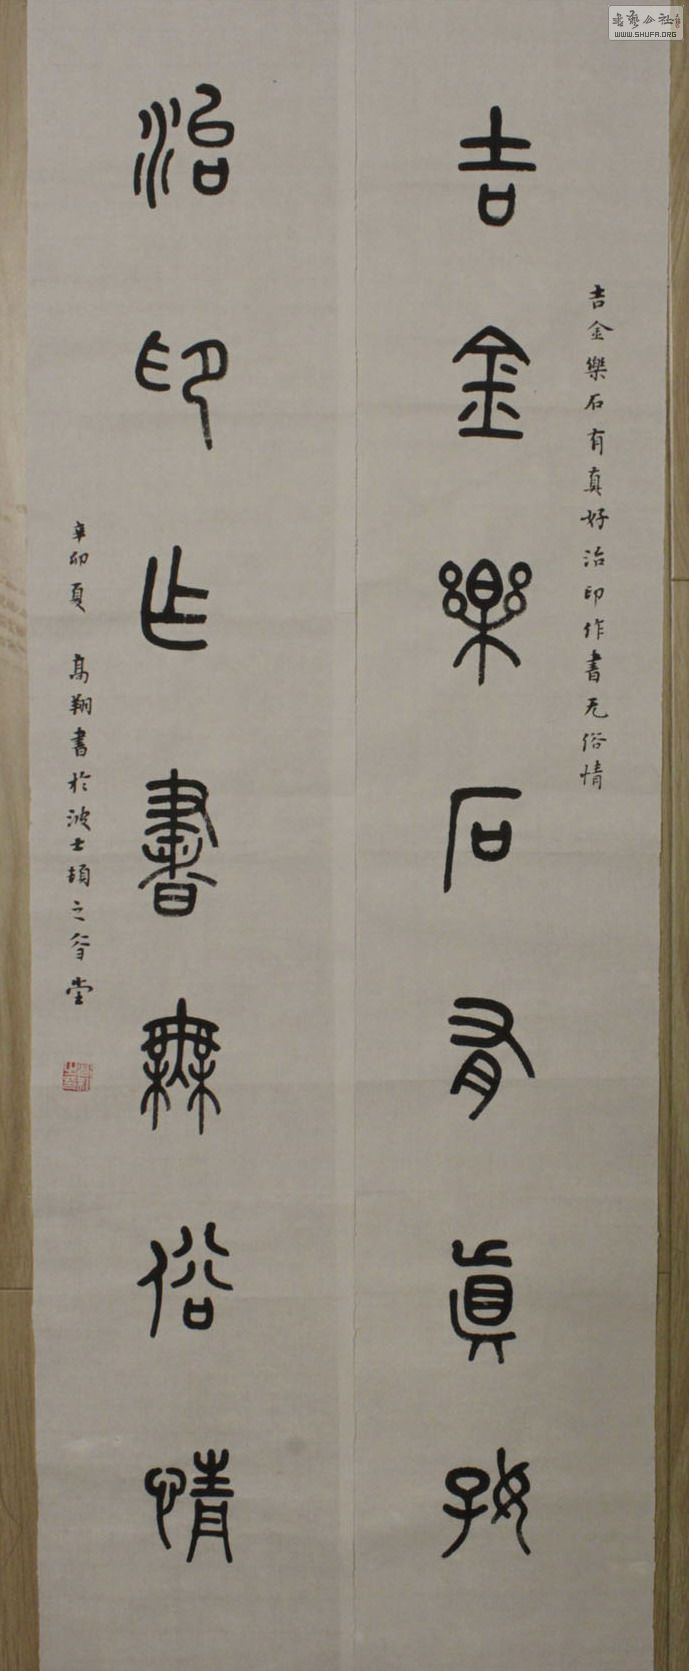 吉金樂石有真好
吉金樂石有真好治印作書无俗情
治印作書無俗情
辛卯夏 高翔書於波士頓之
堂
WWW.SHUFA.ORG